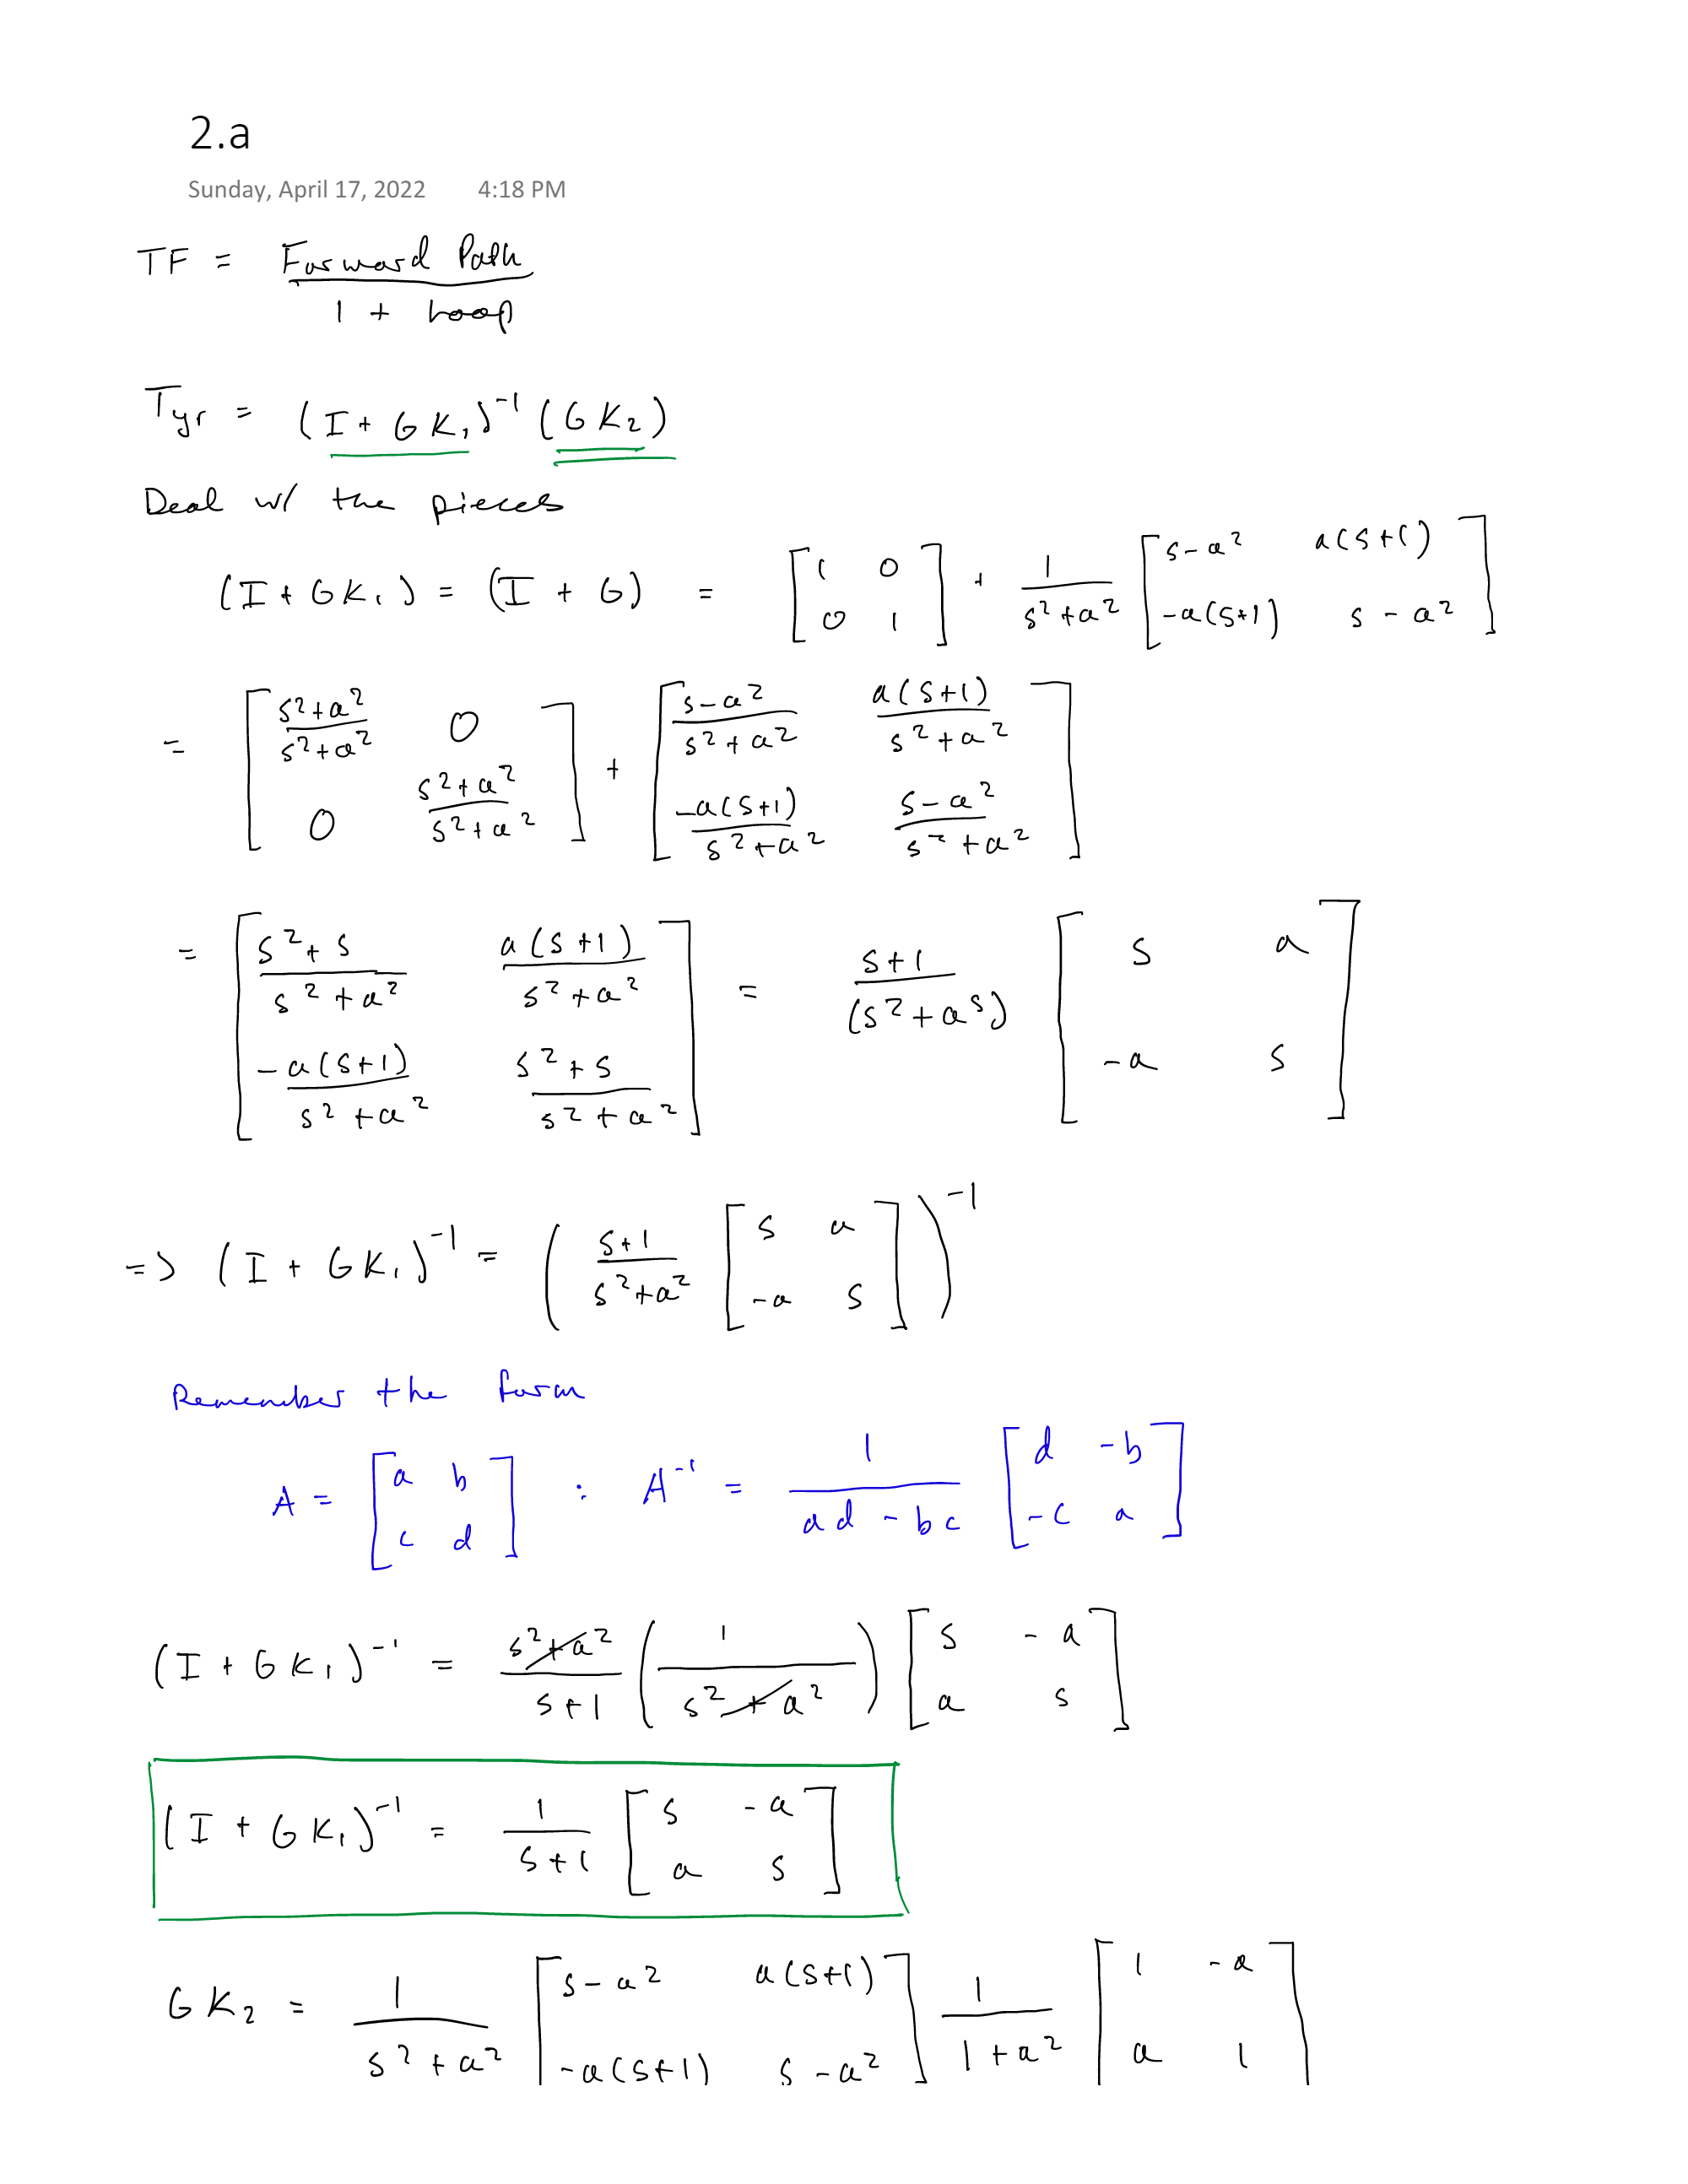 2.a
Sunday, April 17, 2022 4:18 PM
TF = Forward Path / 1 + Loop
Tyr = (I + GK₁)⁻¹ (GK₂)
Deal w/ the pieces
(I + GK₁) = (I + G) = [1 0; 0 1] + 1/(s²+a²) [s-a² a(s+1); -a(s+1) s-a²]
= [(s²+a²)/(s²+a²) 0; 0 (s²+a²)/(s²+a²)] + [(s-a²)/(s²+a²) a(s+1)/(s²+a²); -a(s+1)/(s²+a²) (s-a²)/(s²+a²)]
= [(s²+s)/(s²+a²) a(s+1)/(s²+a²); -a(s+1)/(s²+a²) (s²+s)/(s²+a²)] = (s+1)/(s²+aˢ) [s a; -a s]
=> (I + GK₁)⁻¹ = ((s+1)/(s²+a²) [s a; -a s])⁻¹
Remember the form
A = [a b; c d] : A⁻¹ = 1/(ad - bc) [d -b; -c a]
(I + GK₁)⁻¹ = (s²+a²)/(s+1) (1/(s²+a²)) [s -a; a s]
(I + GK₁)⁻¹ = 1/(s+1) [s -a; a s]
GK₂ = 1/(s²+a²) [s-a² a(s+1); -a(s+1) s-a²] 1/(1+a²) [1 -a; a 1]